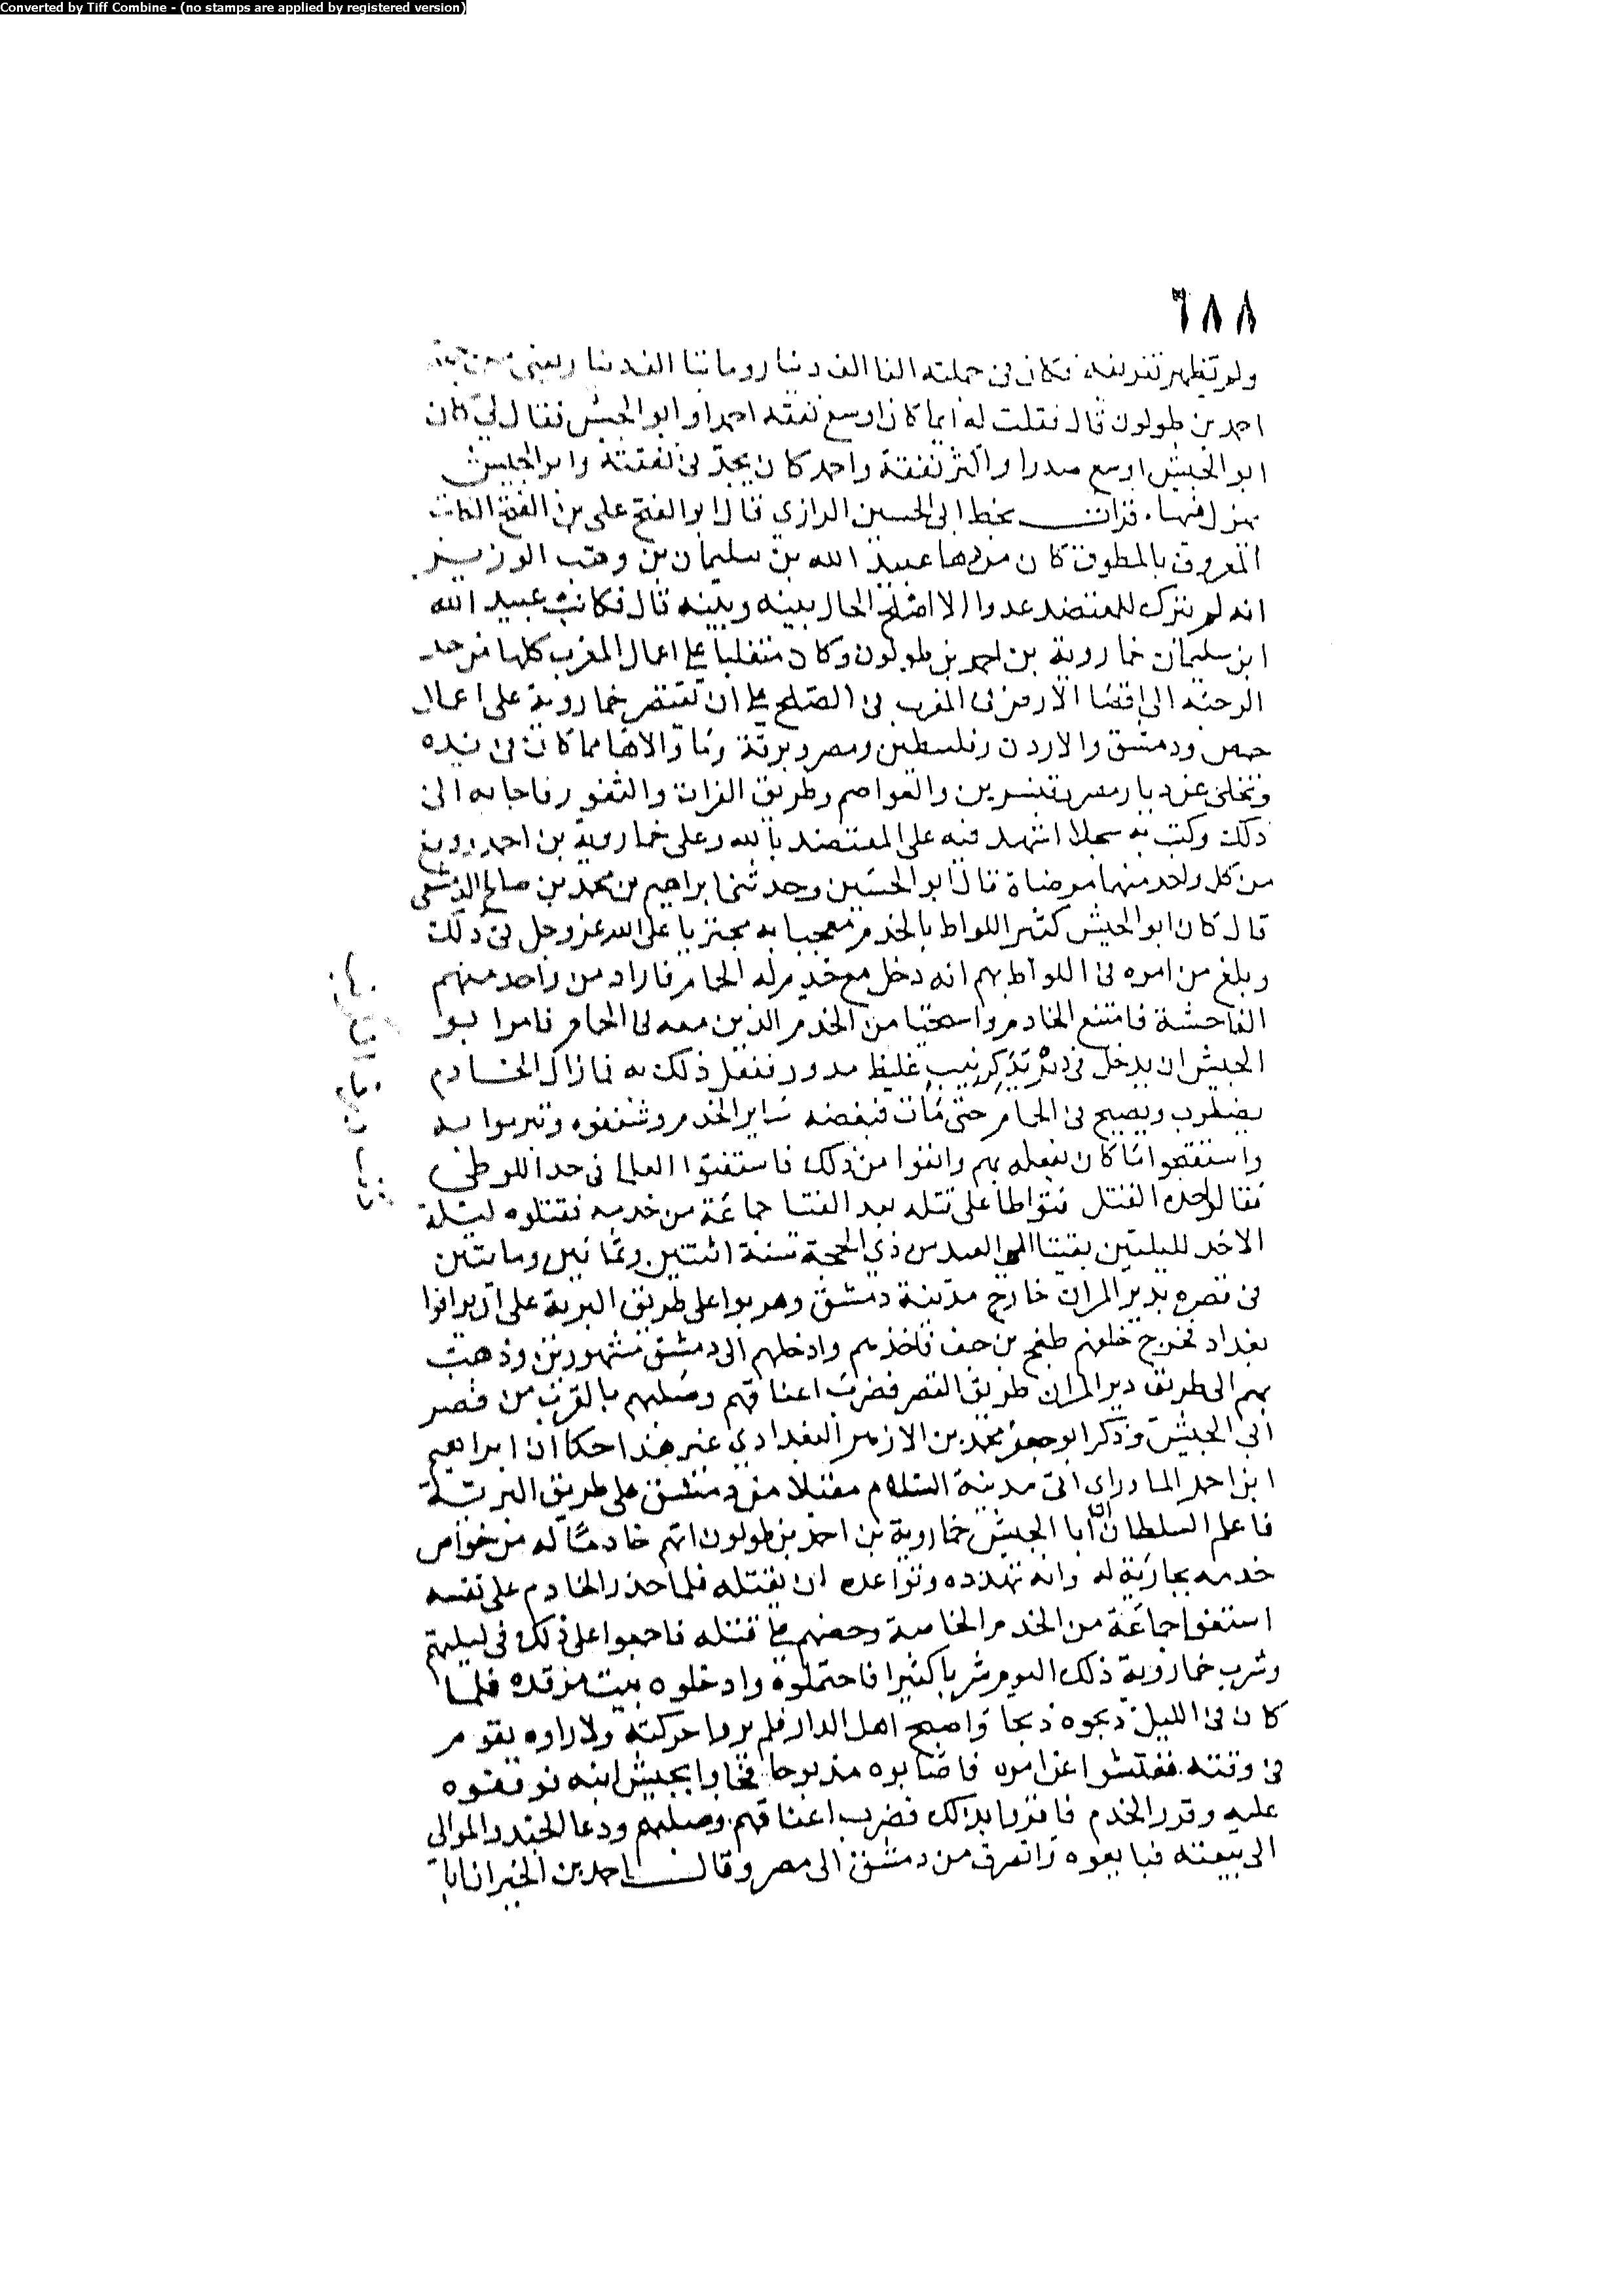 Converted by Tiff Combine - (no stamps are applied by registered version)
٦٨٨
ولم تظهر تفرقته فكان في جملته الفا الف دينار وماتنا الف دينار يعني
احمد بن طولون قال فقلت له ايما كان اوسع نفقة احمد او ابو الجيش فقال لي كان
ابو الجيش اوسع صدرا واكثر نفقة واحمد كان يجد في نفقته وابو الجيش
يهزل فيها. قرات بخط ابى الحسين الرازي قال ابو الفتح على بن الفتح الكاتب
المعروف بالمطوق كان من دها عبيد الله بن سليمان بن وهب الوزير
انه لم يترك للمعتضد عدوا الا اصلح الحال بينه وبينه قال فكاتب عبيد الله
ابن سليمان خمارويه بن احمد بن طولون وكان متغلبا على اعمال المغرب كلها من حد
الرحبه الى اقصا الارض في المغرب فى الصلح على ان يقتصر خمارويه على اعمال
حمص ودمشق والاردن وفلسطين ومصر وبرقة وما والاها مما كان في يده
ويتخلى عن ديار مصر وقنسرين والعواصم وطريق الفرات والثغور فاجابه الى
ذلك وكتب به سجلا اشهد فيه على المعتضد بالله وعلى خمارويه بن احمد ووقع
من كل واحد منهما موضاة قال ابو الحسين وحدثنى ابراهيم بن محمد بن صالح الدمشقى
قال كان ابو الجيش كثير اللواط بالخدم معجبا به مجتريا على الله عز وجل فى ذلك
وبلغ من امره فى اللواط بهم انه دخل مع خدم له الحمام فاراد من واحد منهم
الفاحشة فامتنع الخادم واستحيا من الخدم الذين معه فى الحمام فامر ابو
الجيش ان يدخل في دبره يد كرنيب غليظ مدور ففعل ذلك به فما زال الخادم
يضطرب ويصيح فى الحمام حتى مات فبغضه ساير الخدم وشنفوه وتبرموا به
واستقبحوا ما كان يفعله بهم وانفوا من ذلك فاستفتوا العلما فى حد اللوطى
فقالوا حده القتل فتواطا على قتله بعد الفتيا جماعة من خدمه فقتلوه ليلة
الاحد لليلتين بقيتا من ذى الحجة سنة اثنتين وثمانين ومايتين
فى قصره بدير المران خارج مدينة دمشق وهربوا على طريق البرية على ان يوافوا
بغداد فخرج خلفهم طغج بن جف فاخذهم وادخلهم الى دمشق مشهورين وذهب
بهم الى طريق دير المران طريق القصر فضرب اعناقهم وصلبهم بالقرب من قصر
ابى الجيش وذكر ابو جعفر محمد بن الازهر البغدادي غير هذا حكا ان ابراهيم
ابن احمد المادراى اتى مدينة السلام مقبلا من دمشق على طريق البرية
فاعلم السلطان ان ابا الجيش خمارويه بن احمد بن طولون اتهم خادما له من خواص
خدمه بجارية له وانه تهدده وتواعده ان يقتله فلما حذر الخادم على نفسه
استغوا جماعة من الخدم الخاصة وحضهم على قتله فاجمعوا على ذلك فى ليلتهم
وشرب خمارويه ذلك اليوم شربا كثيرا فاحتملوه وادخلوه بيت مرقده فلما
كان فى الليل ذبحوه ذبحا واصبح اهل الدار فلم يروا حركته ولا راوه يقوم
فى وقته ففتشوا عن امره فاصابوه مذبوحا فجاوا بجيش ابنه فوقفوه
عليه وقرر الخدم فاقروا بذلك فضرب اعناقهم وصلبهم ودعا الجند والموالى
الى بيعته فبايعوه وانصرف من دمشق الى مصر وقال احمد بن الخير انا ابا